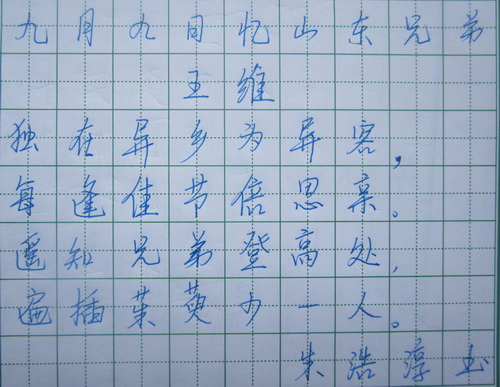 九月九日忆山东兄弟
王维
独在异乡为异客，
每逢佳节倍思亲。
遥知兄弟登高处，
遍插茱萸少一人。
朱浩淳书